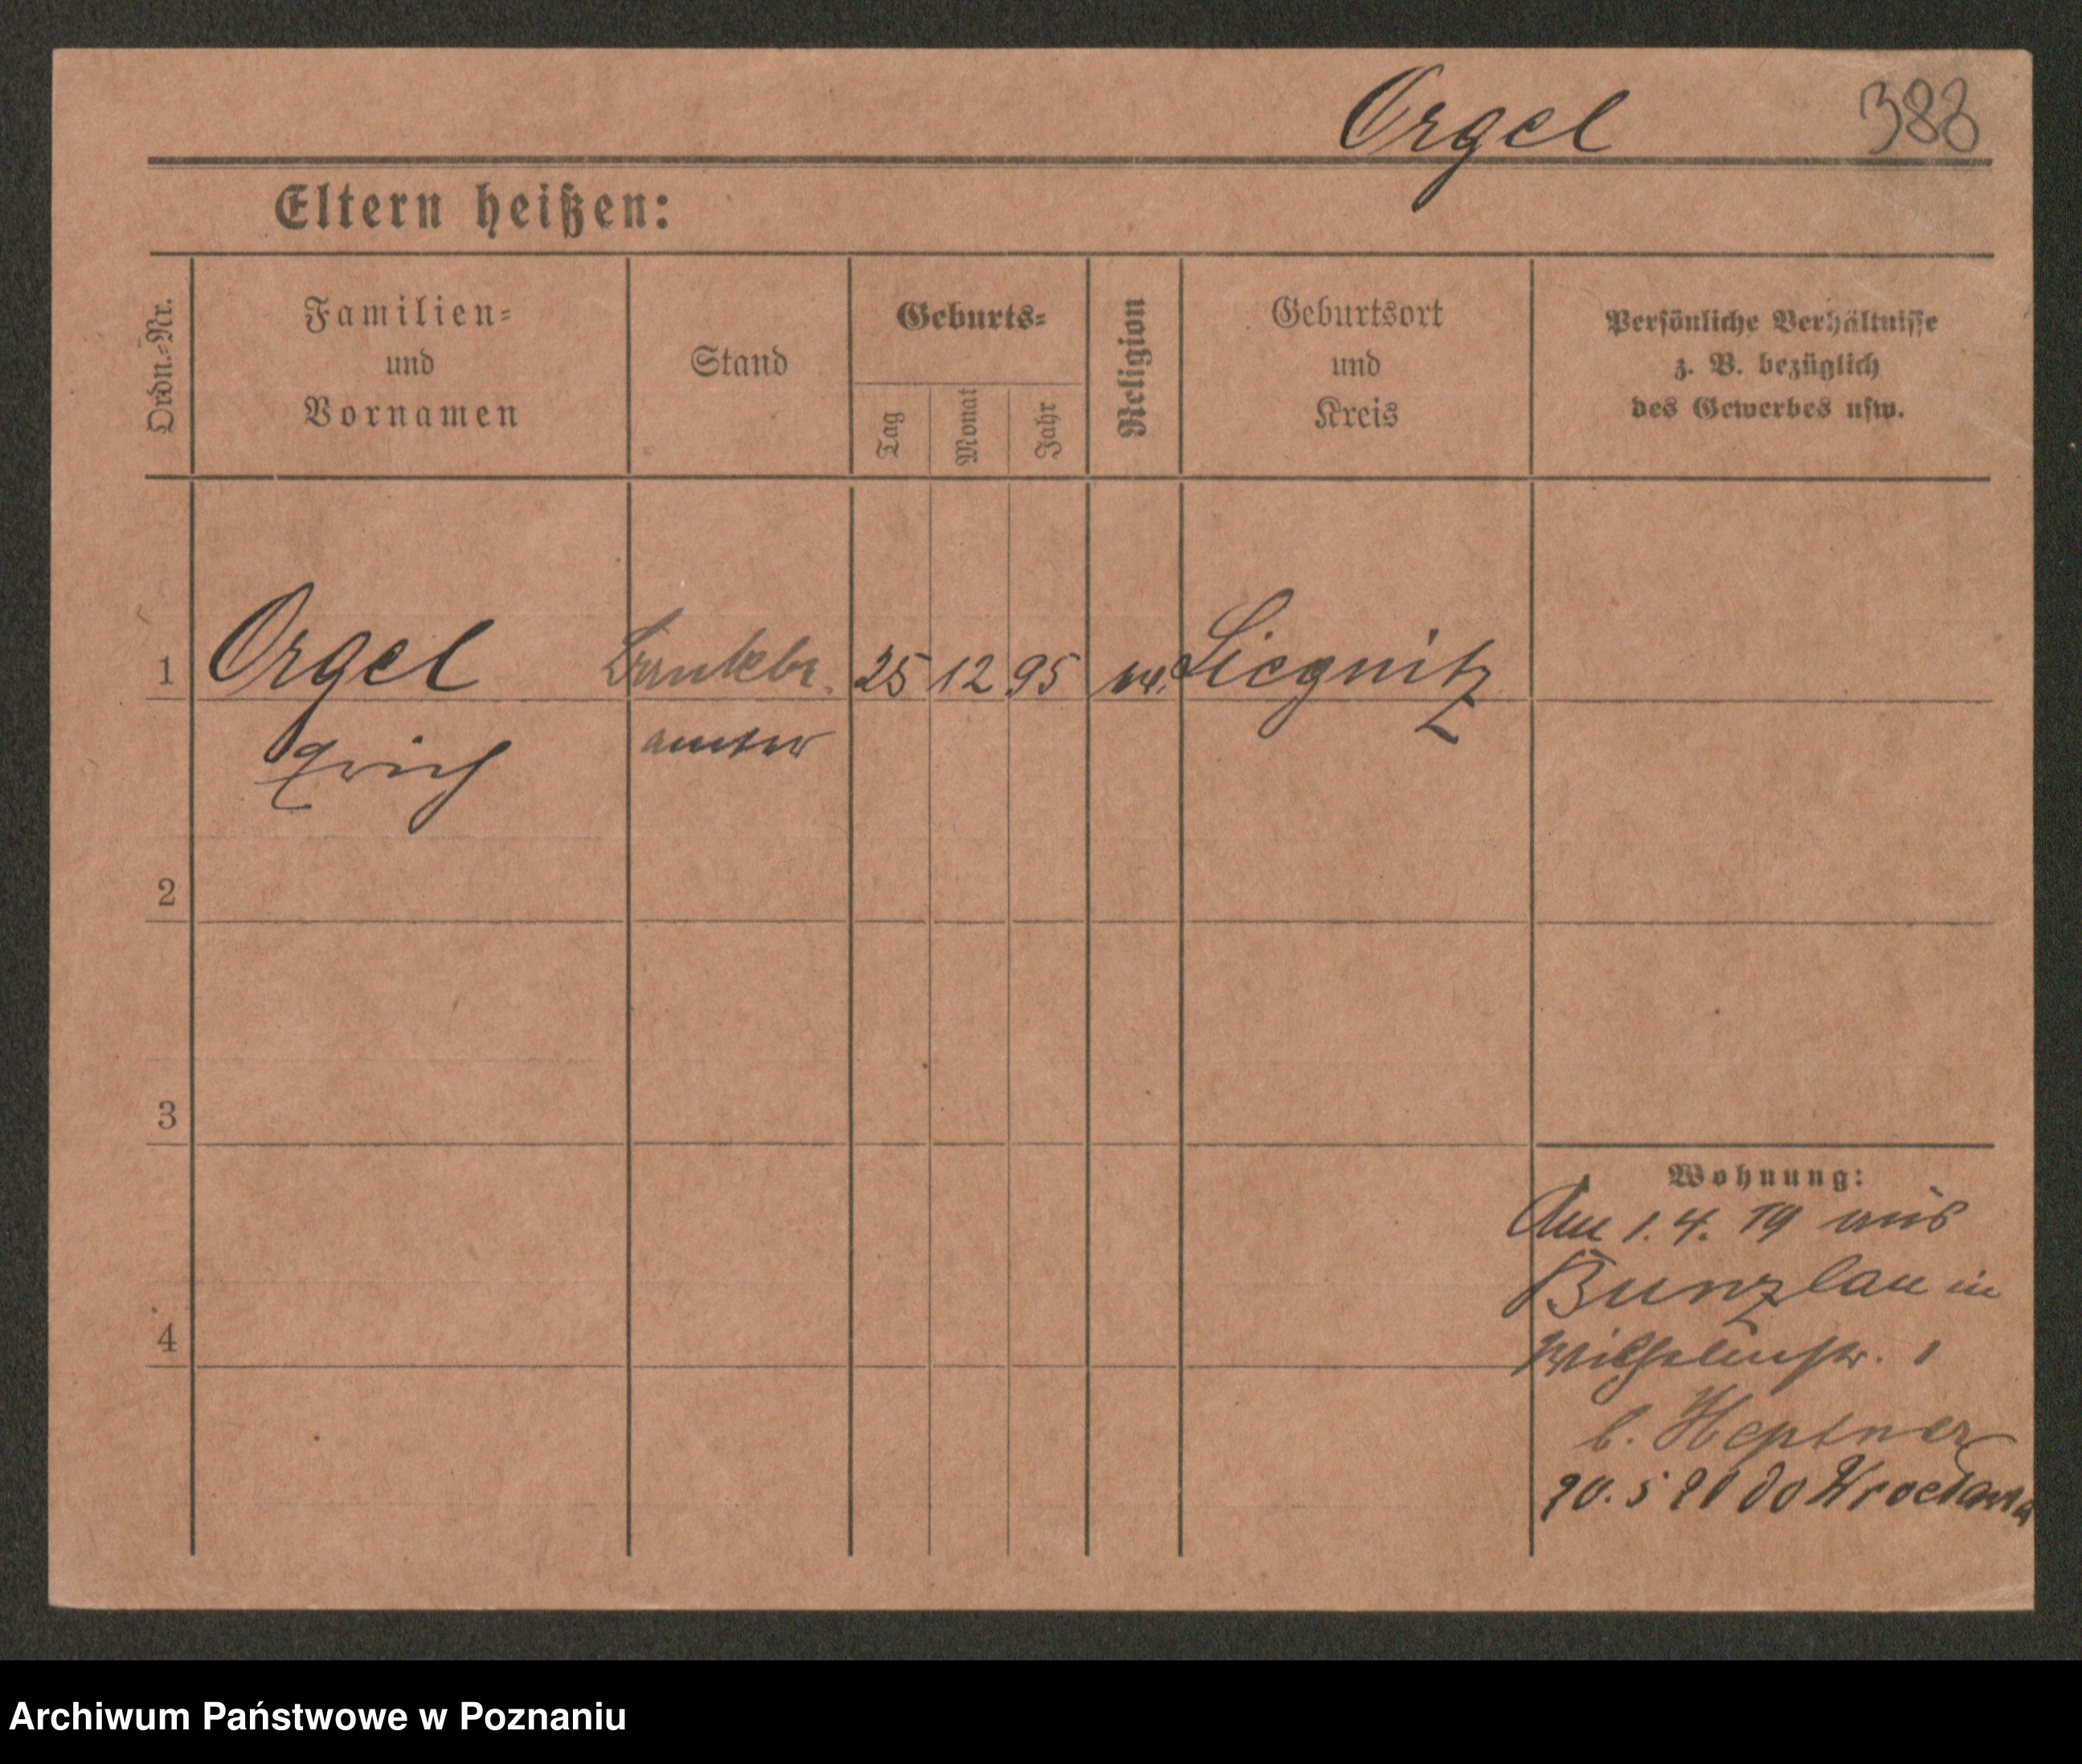 Orgel 388
Eltern heißen:
Ordn.-Nr.
Familien-
und
Vornamen
Stand
Geburts-
Tag
Monat
Jahr
Religion
Geburtsort
und
Kreis
Persönliche Verhältnisse
z. B. bezüglich
des Gewerbes usw.
1 Orgel Bankbe. 25 12 95 Liegnitz
Erich amter
2
3
4
Wohnung:
Am 1. 4. 19 aus
Bunzlau in
Wilhelmstr. 1
b. Heptner
20. 5 20 do Wrocławia
Archiwum Państwowe w Poznaniu